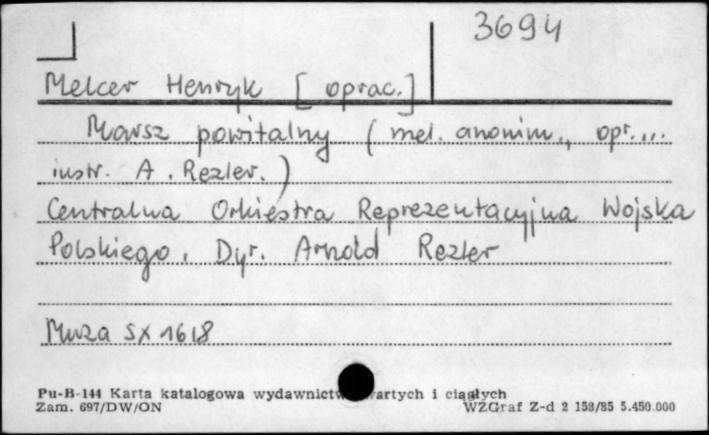 3694
Melcer Henryk [oprac.]
Marsz powitalny (mel. anonim., opr....
instr. A. Rezler.)
Centralna Orkiestra Reprezentacyjna Wojska
Polskiego. Dyr. Arnold Rezler
Muza SX 1618
Pu-B-144 Karta katalogowa wydawnictw wartych i ciągłych
Zam. 697/DW/ON WZGraf Z-d 2 158/85 5.450.000